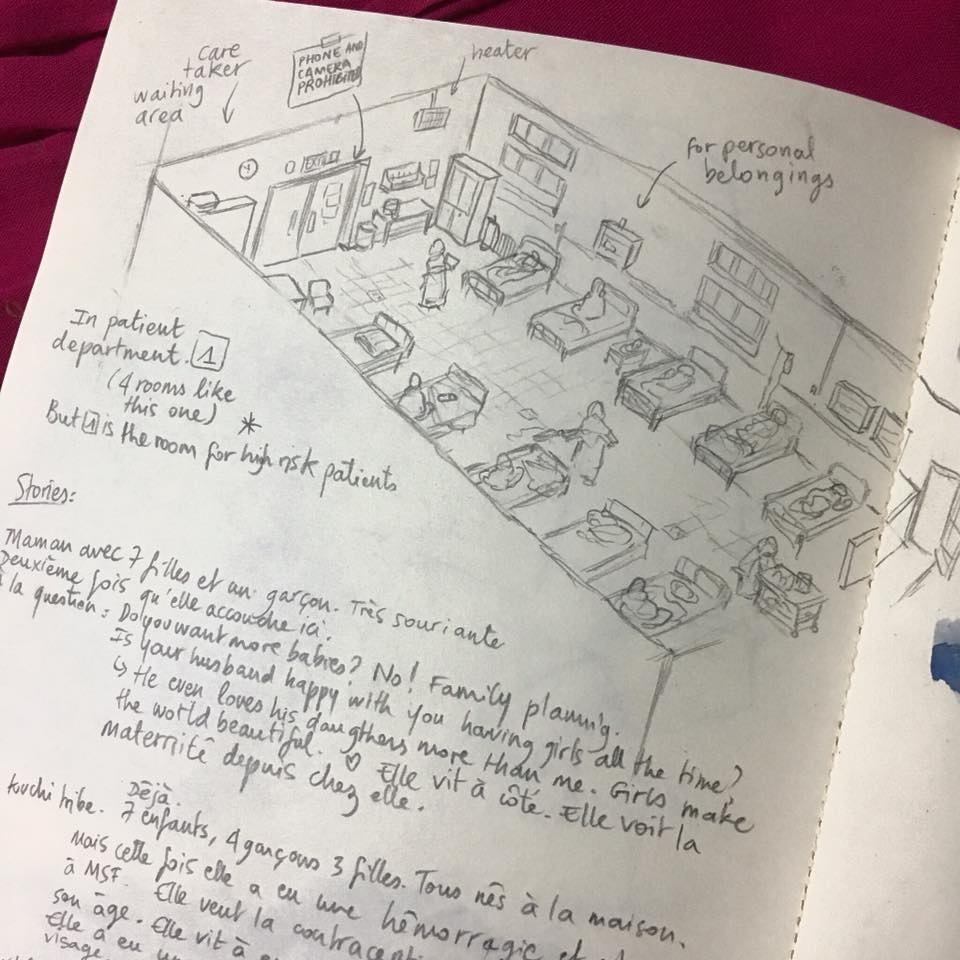 care
taker
waiting
area
PHONE AND
CAMERA
PROHIBITED
heater
for personal
belongings
EXIT
In patient
department. 1
(4 rooms like
this one) *
But 1 is the room for high risk patients
Stories:
Maman avec 7 filles et un garçon. Très souriante
Deuxième fois qu'elle accouche ici.
à la question: Do you want more babies? No! Family planning.
Is your husband happy with you having girls all the time?
↳ He even loves his daugthers more than me. Girls make
the world beautiful. ♡ Elle vit à côté. Elle voit la
maternité depuis chez elle.
Déjà.
touchi tribe. 7 enfants, 4 garçons 3 filles. Tous nés à la maison.
Mais cette fois elle a eu une hémorragie et
à MSF. Elle veut la
son âge. Elle vit à
Elle a eu un
visage.